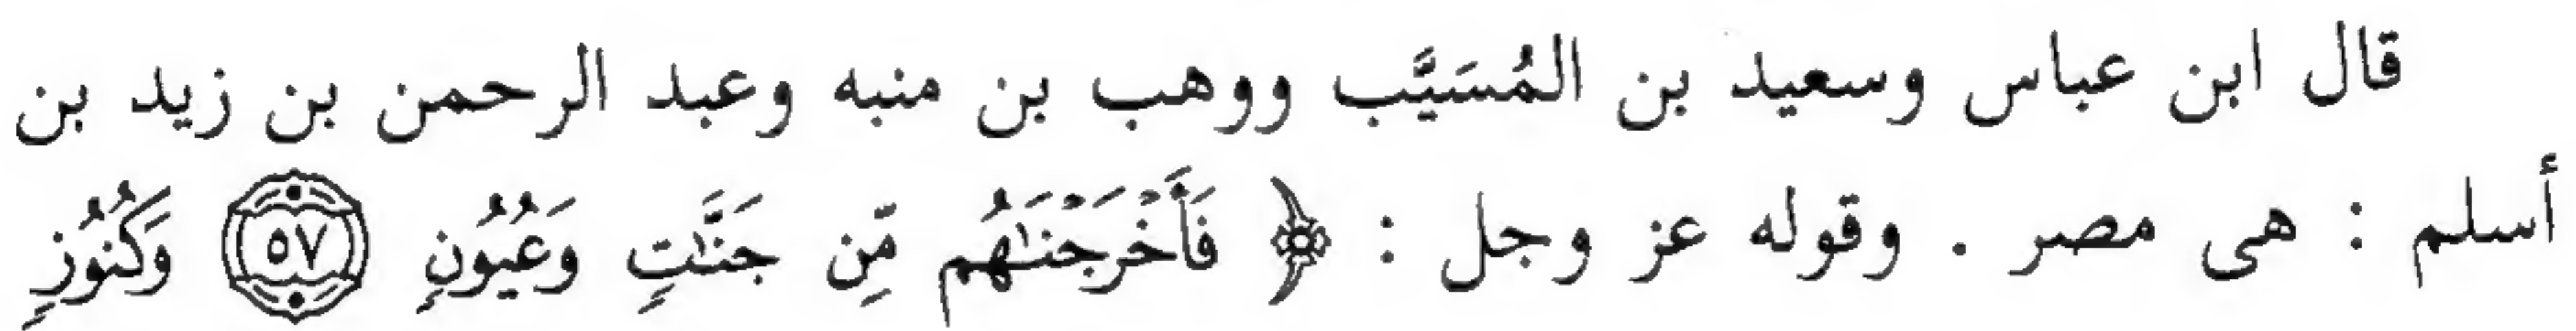 قال ابن عباس وسعيد بن المُسَيَّب ووهب بن منبه وعبد الرحمن بن زيد بن
أسلم : هى مصر . وقوله عز وجل : ﴿ فَأَخْرَجْنَٰهُم مِّن جَنَّٰتٍ وَعُيُونٍ ٥٧ وَكُنُوزٍ